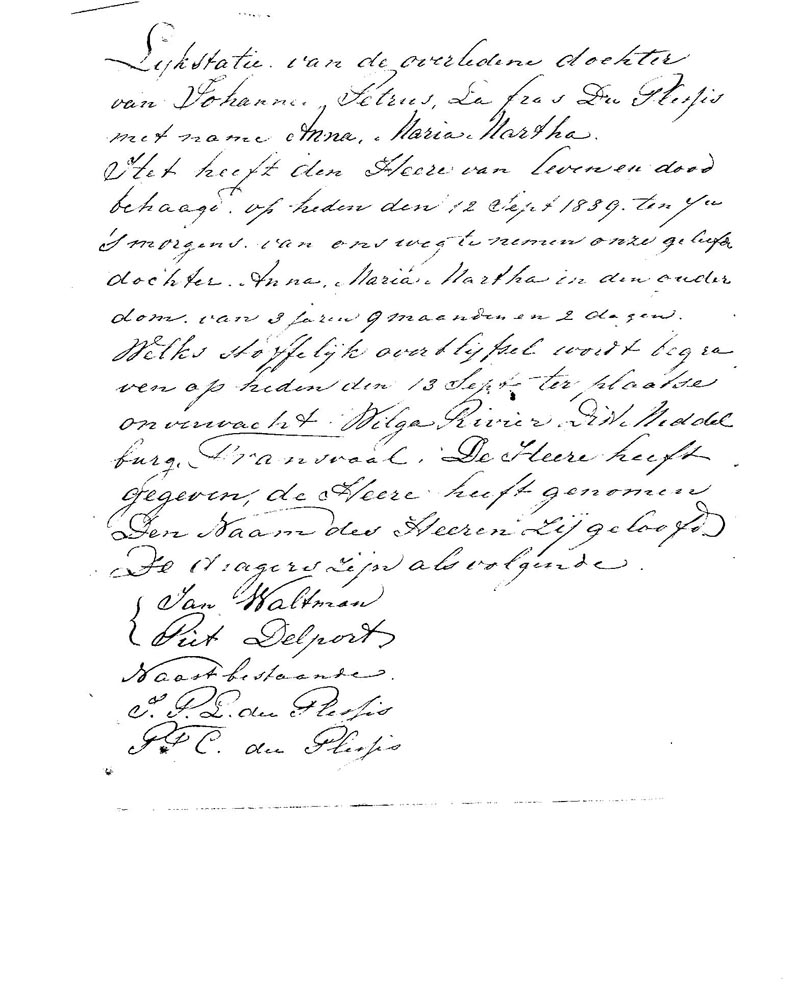 Lijkstatie van de overledene dochter
van Johannes, Petrus, La fras Du Plessis
met name Anna, Maria Martha.
Het heeft den Heere van leven en dood
behaagd. op heden den 12 Sept 1889. ten 7 ure
's morgens. van ons weg te nemen onze geliefde
dochter. Anna, Maria Martha in den ouder
dom. van 3 jaren 9 maanden en 2 dagen.
Welks stoffelijk overblijfsel wordt begra
ven op heden den 13 Sept. ter plaatse
onverwacht Wilga Rivier Dist. Middel
burg. Transvaal. De Heere heeft
gegeven, de Heere heeft genomen
Den Naam des Heeren Zij geloofd
De dragers Zijn als volgende.
Jan Waltman
Piet Delport
Naastbestaande.
J. P. L. du Plessis
P F C. du Plessis